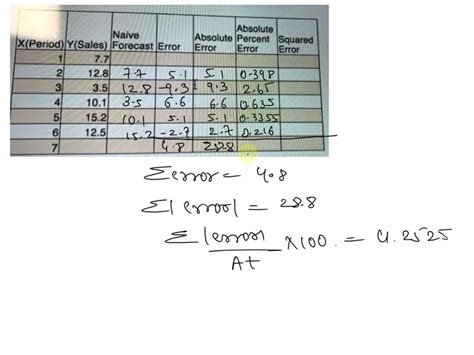 X(Period) Y(Sales) Naive Forecast Error Absolute Error Absolute Percent Error Squared Error
1 7.7
2 12.8 7.7 5.1 5.1 0.398
3 3.5 12.8 -9.3 9.3 2.65
4 10.1 3.5 6.6 6.6 0.635
5 15.2 10.1 5.1 5.1 0.3355
6 12.5 15.2 -2.7 2.7 0.216
7 4.8 28.8
Σ error = 4.8
Σ | error | = 28.8
Σ | error |
/ At × 100 = 4.2525